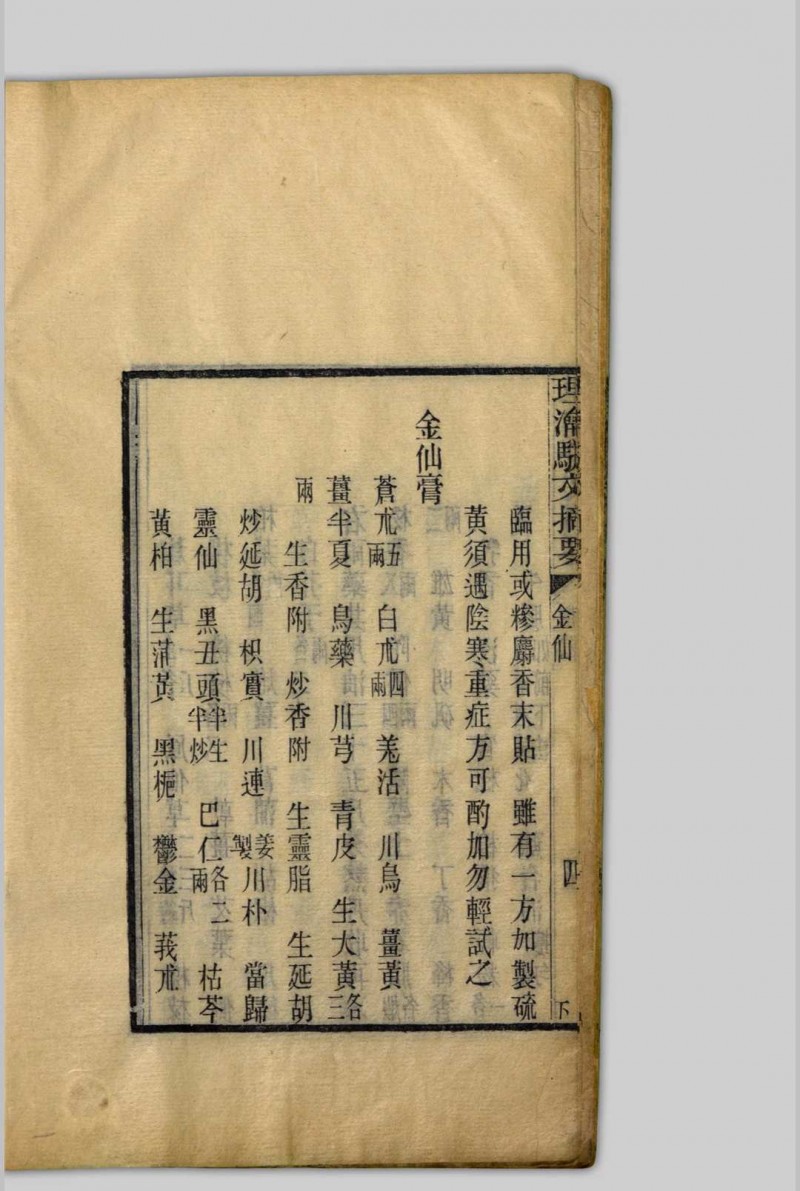 理瀹駢文摘要 金仙 四 下
臨用或糝麝香末貼 雖有一方加製硫
黃須遇陰寒重症方可酌加勿輕試之
金仙膏
蒼朮五兩 白朮四兩 羗活 川烏 薑黃
薑半夏 烏藥 川芎 青皮 生大黃各三
兩 生香附 炒香附 生靈脂 生延胡
炒延胡 枳實 川連姜製 川朴 當歸
靈仙 黑丑頭半生半炒 巴仁各二兩 枯芩
黃柏 生蒲黃 黑梔 鬱金 莪朮